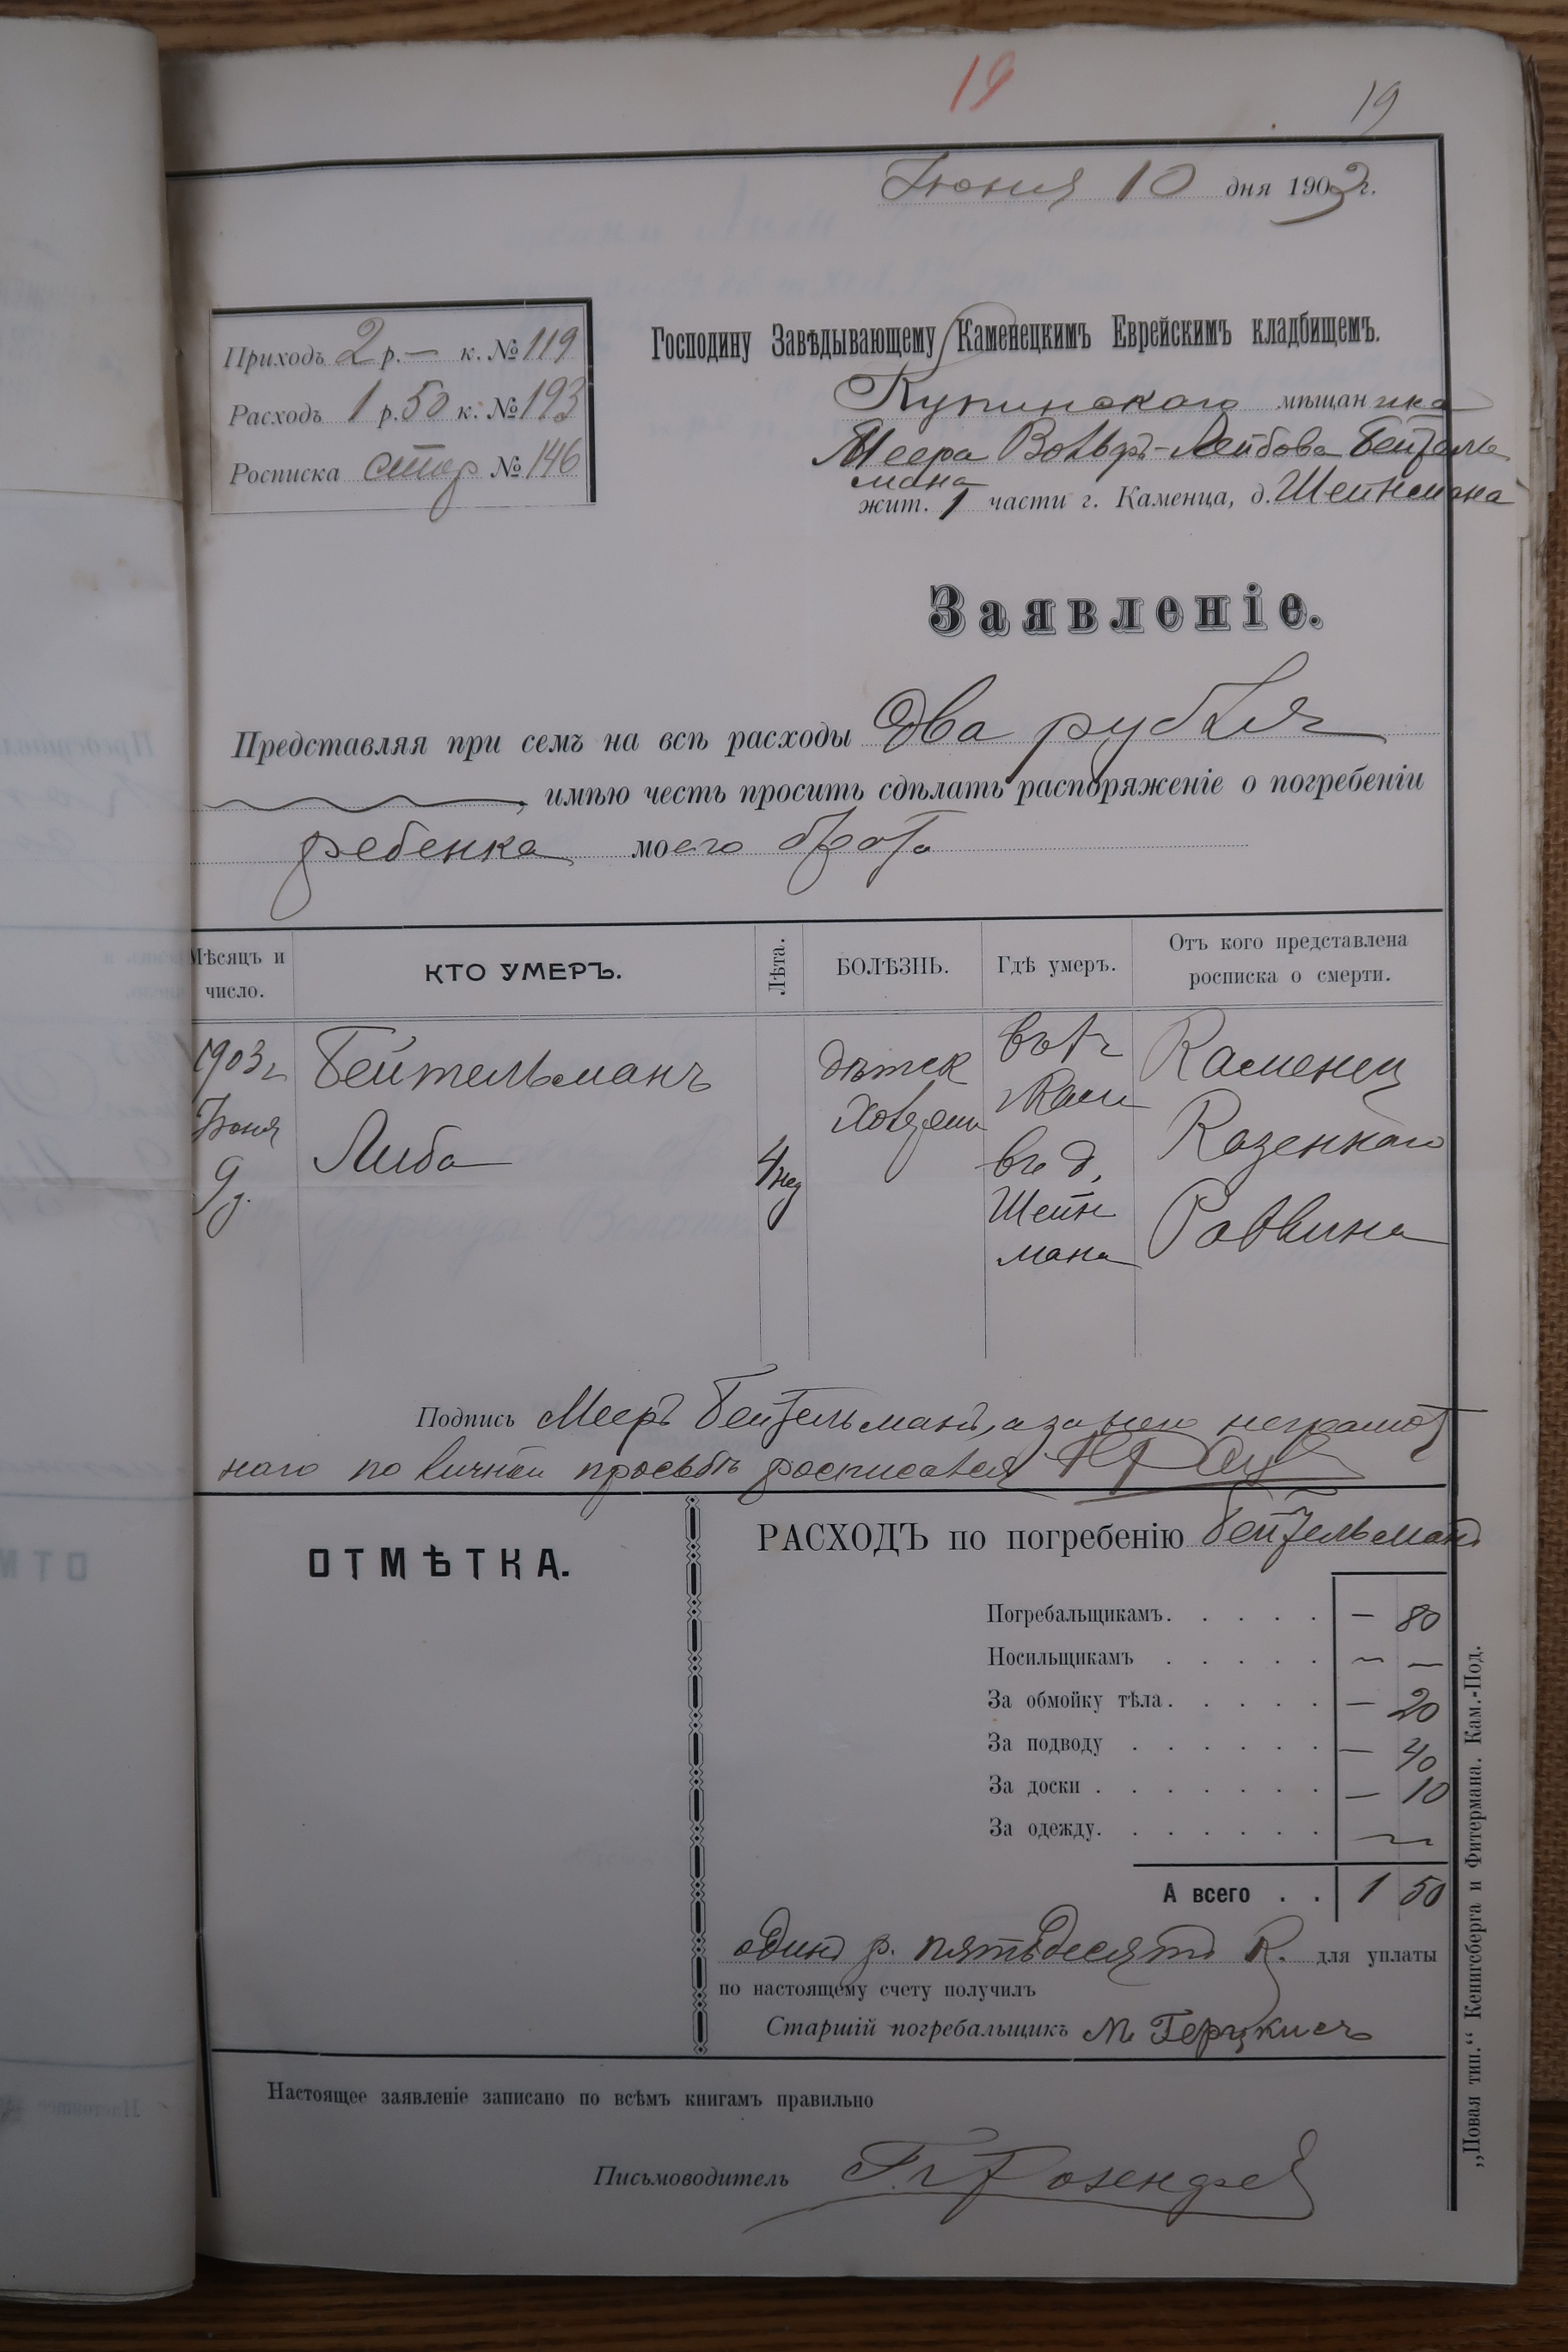 19
19
Іюня 10 дня 1903 г.
Приходъ 2 р. — к. № 119
Расходъ 1 р. 50 к. № 193
Росписка № 146
Господину Завѣдывающему Каменецкимъ Еврейскимъ кладбищемъ.
Купинского мѣщанина
Меера Вольфъ-Лейбова Бейтель
мана
жит. 1 части г. Каменца, д. Шейнмана
Заявленіе.
Представляя при семъ на всѣ расходы два рубля
, имѣю честь просить сдѣлать распоряженіе о погребеніи
ребенка моего брата
Мѣсяцъ и число.
КТО УМЕРЪ.
Лѣта.
БОЛѢЗНЬ.
Гдѣ умеръ.
Отъ кого представлена росписка о смерти.
1903 г.
Іюня
9 д.
Бейтельманъ
Либа
4 нед
дѣтск
въ г.
Кам
въ д.
Шейн
мана
Каменец
Казеннаго
Раввина
Подпись Мееръ Бейтельманъ, а за него неграмот
наго по личной просьбѣ росписался
ОТМѢТКА.
РАСХОДЪ по погребенію Бейтельманъ
Погребальщикамъ. . . . . — 80
Носильщикамъ . . . . . — —
За обмойку тѣла. . . . . — 20
За подводу . . . . . . — 40
За доски . . . . . . . — 10
За одежду. . . . . . . —
А всего . . 1 50
одинъ р. пятьдесятъ к. для уплаты
по настоящему счету получилъ
Старшій погребальщикъ М Герцкисъ
Настоящее заявленіе записано по всѣмъ книгамъ правильно
Письмоводитель
„Новая тип.“ Кенигсберга и Фитермана. Кам.-Под.